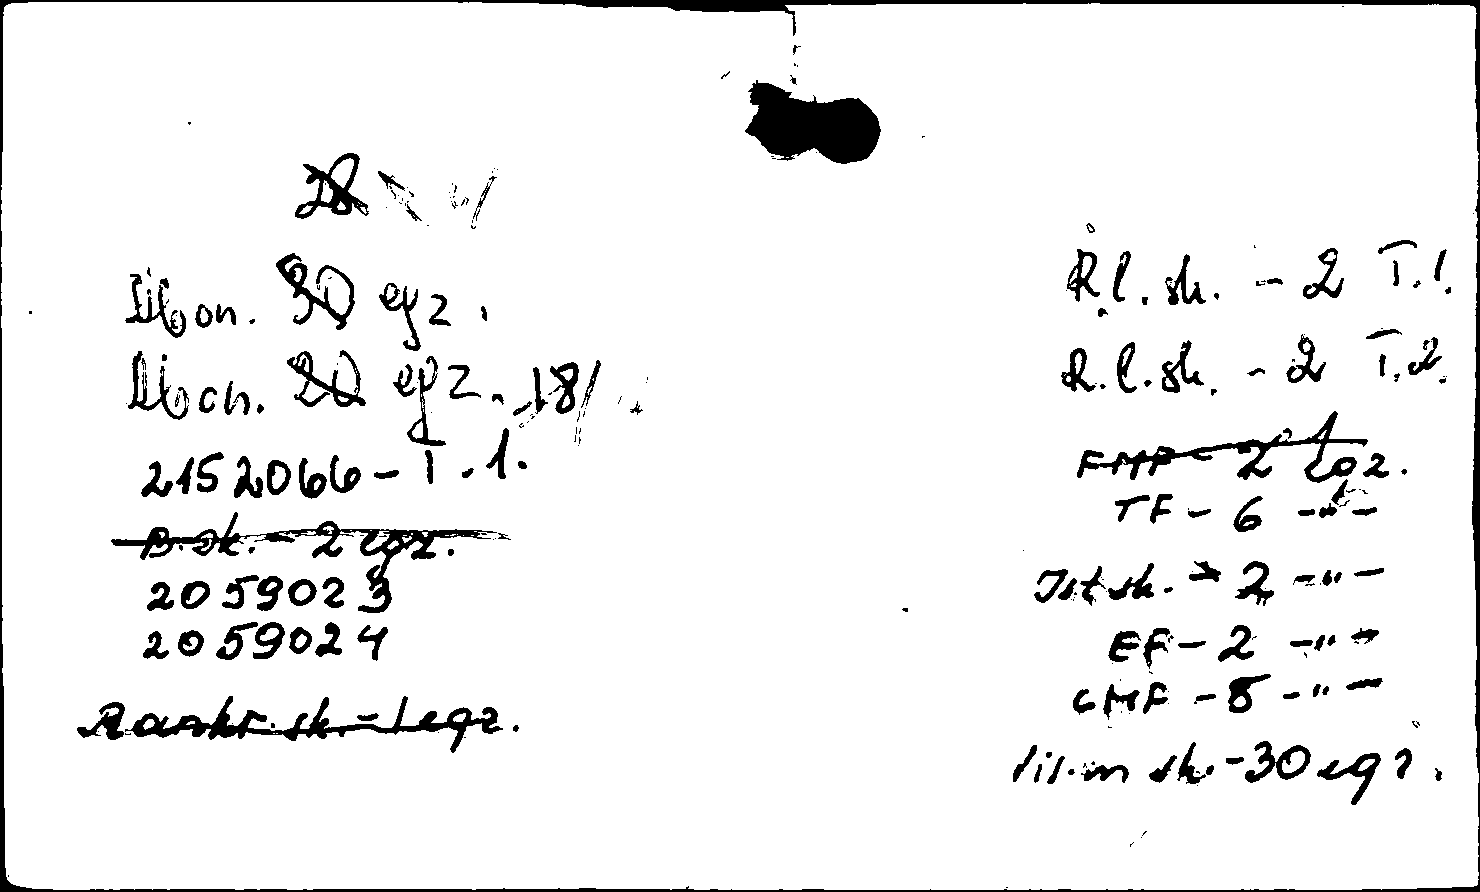 28
Abon. 30 egz.
Abon. 20 egz. 18/
2152066 - T.1.
B.sk. - 2 egz.
2059023
2059024
Rankr. sk. - 1 egz.
R.l.sk. - 2 T.1.
R.l.sk. - 2 T.2.
FMF - 2 egz.
TF - 6 -"-
Ist.sk. - 2 -"-
EF - 2 -"-
CMF - 8 -"-
sk. - 30 egz.